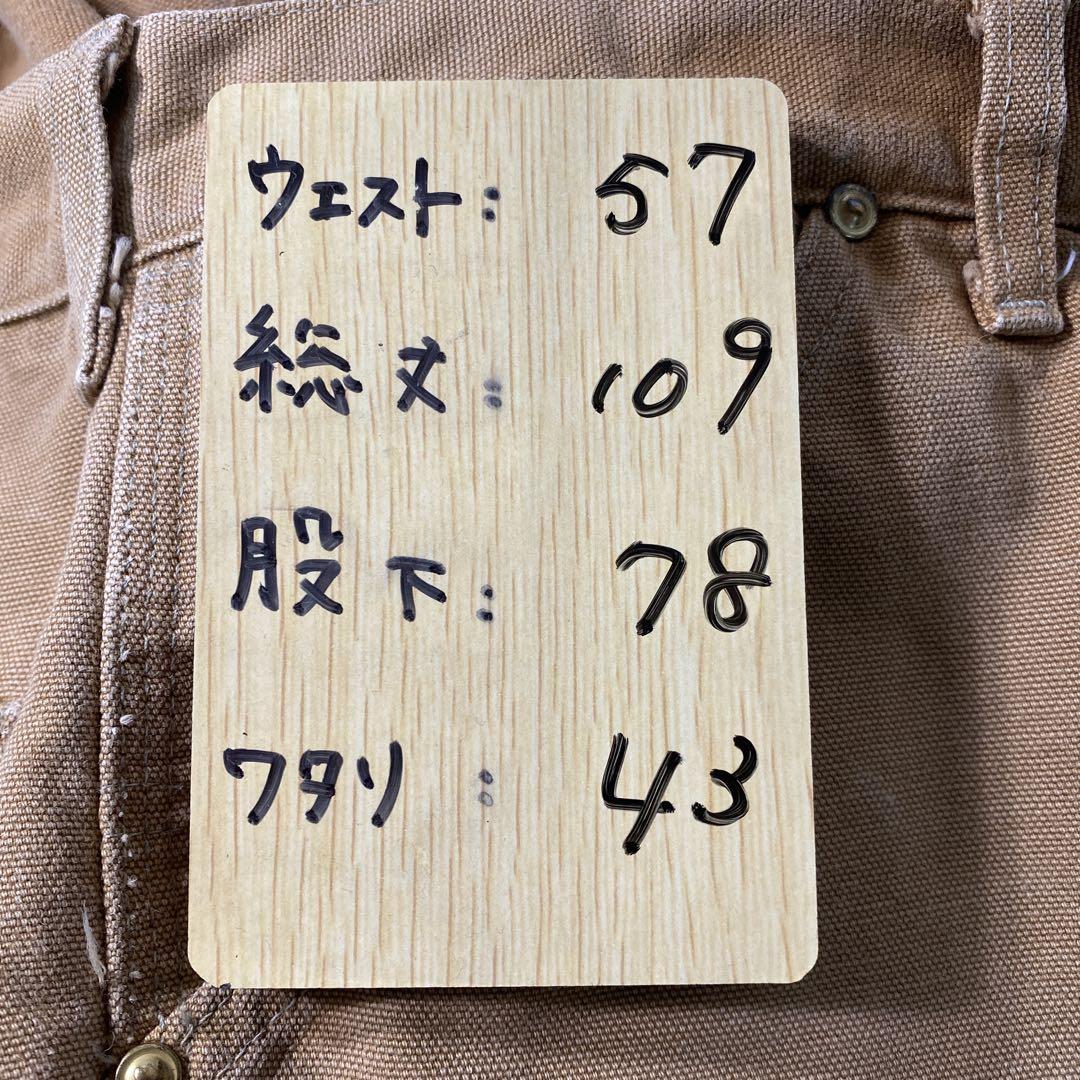 ウエスト: 57
総丈: 109
股下: 78
ワタリ: 43